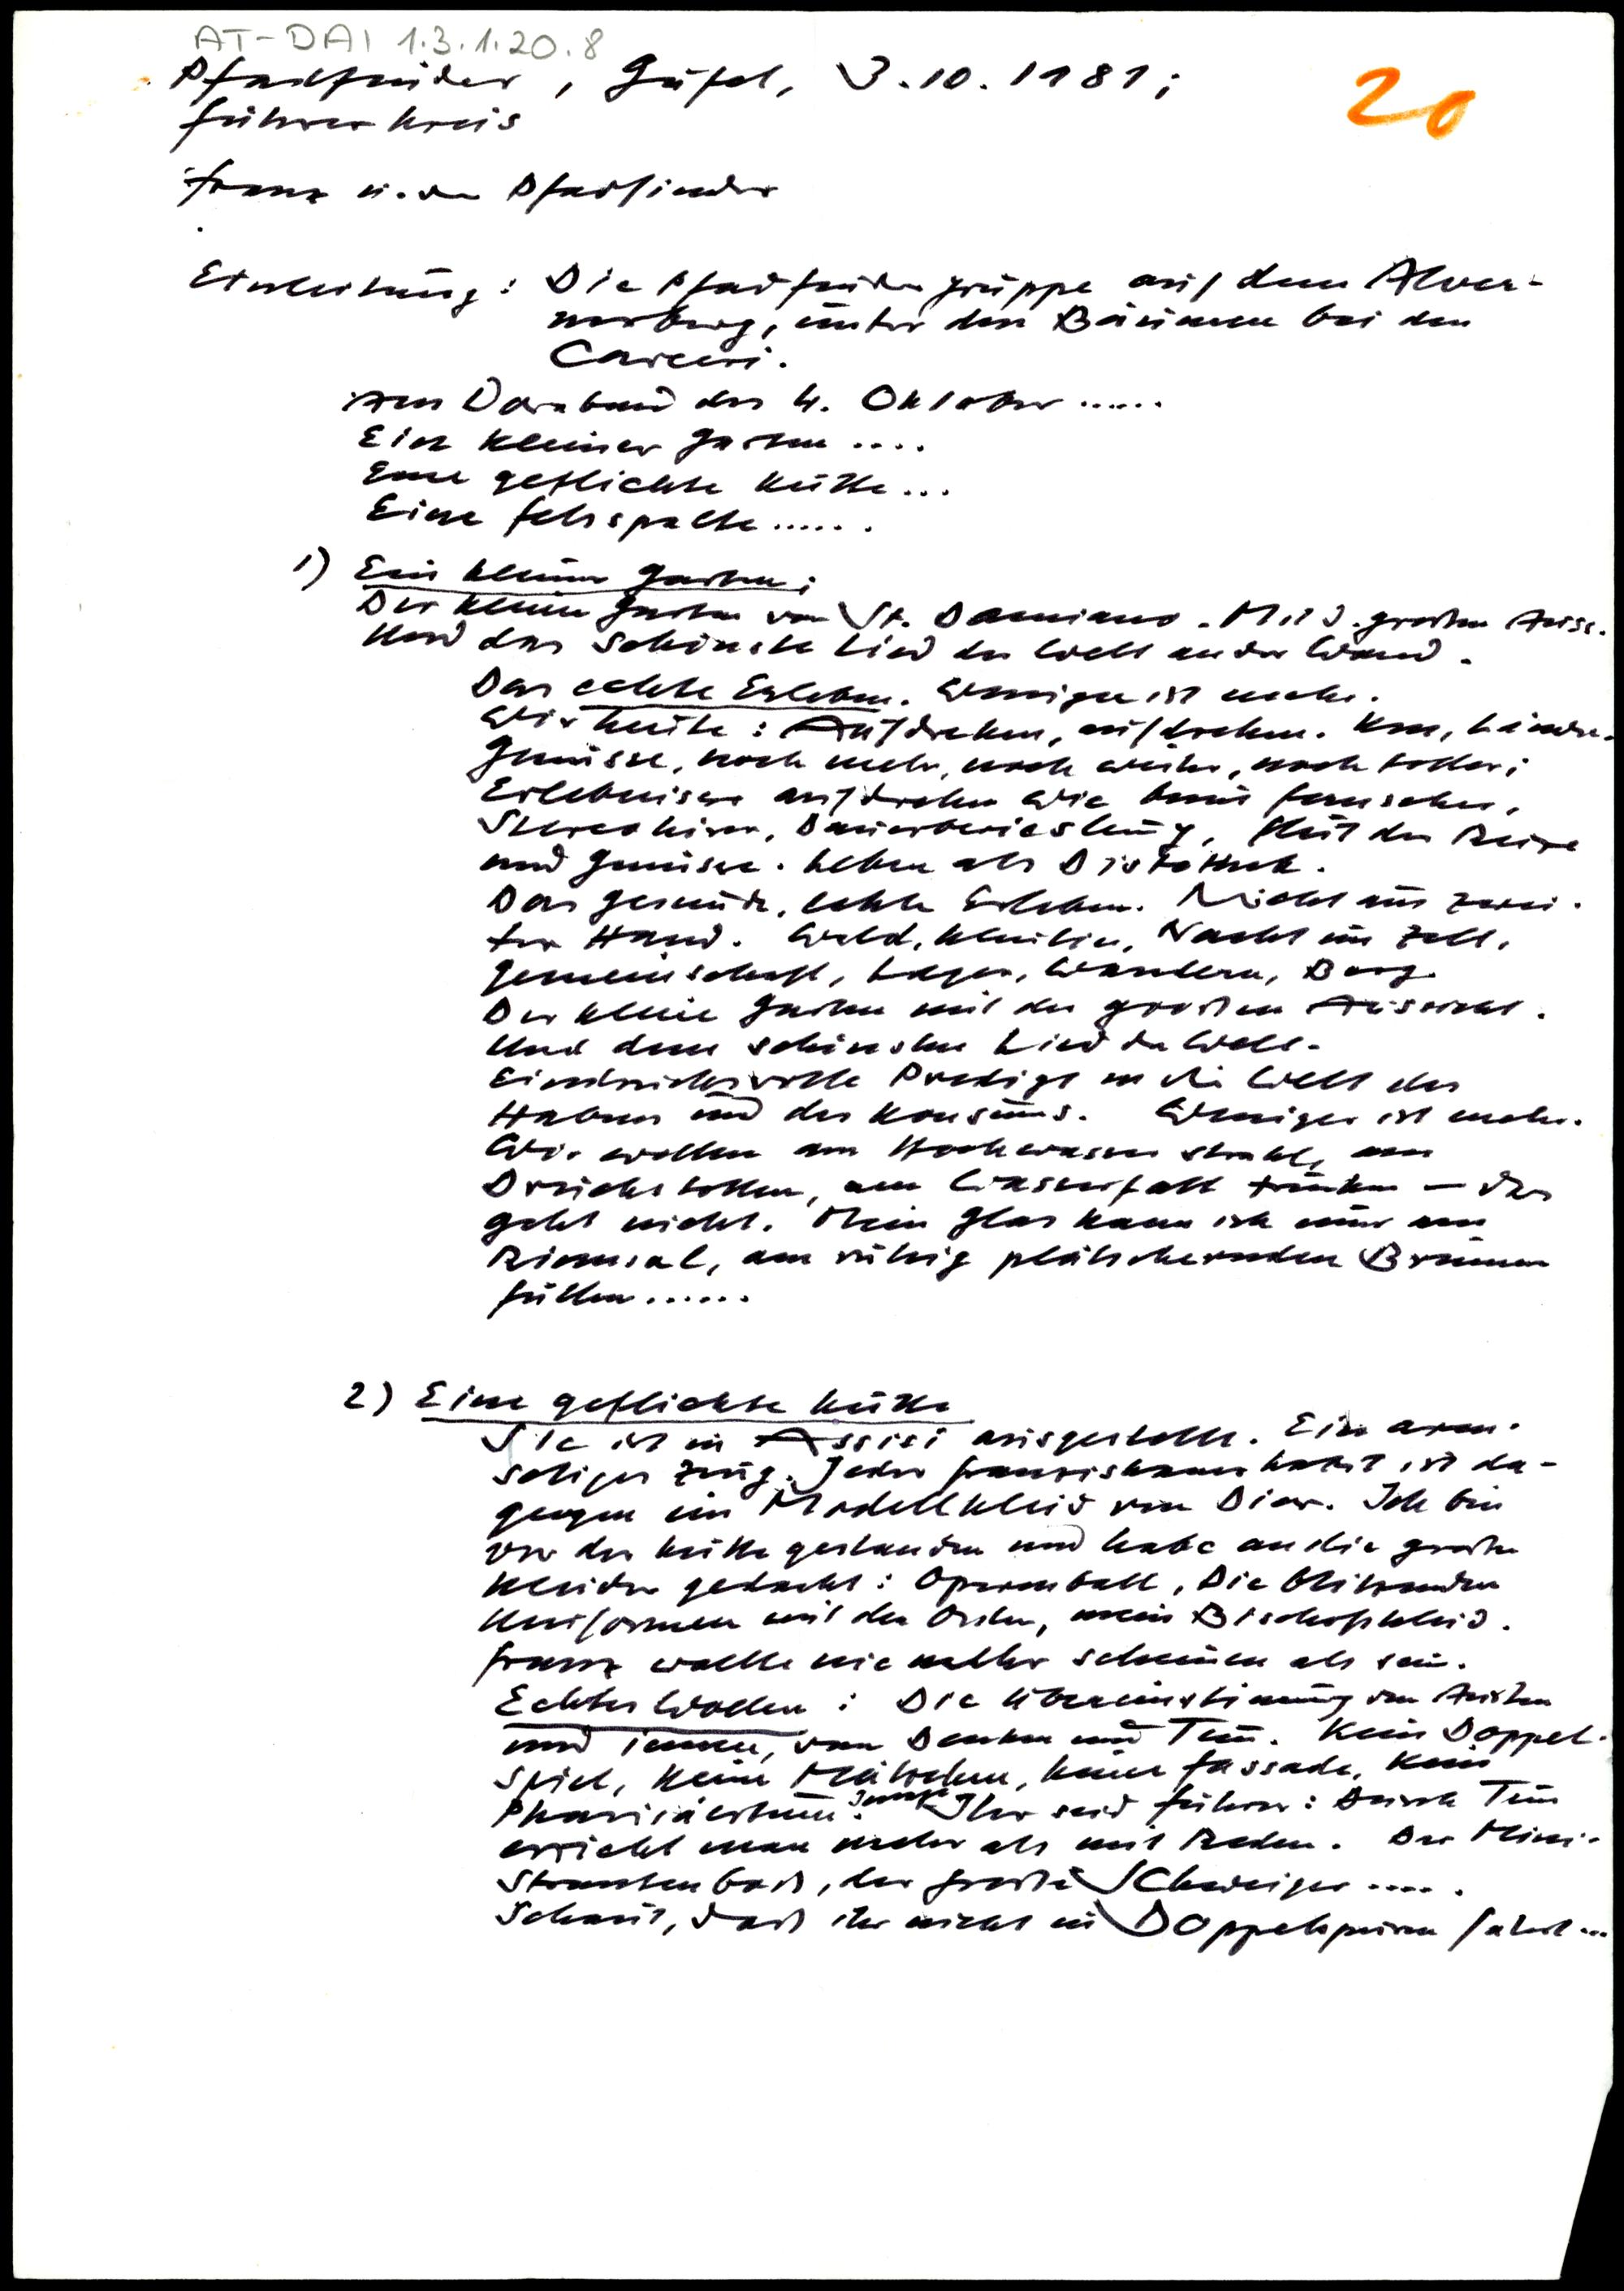 AT-DAI 1.3.1.20.8
Pfadfinder, Gufel, 3.10.1981;
20
Führerkreis
Franz u. die Pfadfinder
Einleitung: Die Pfadfindergruppe auf dem Alver-
nerberg, unter den Bäumen bei den
Carceri.
Am Vorabend des 4. Oktober......
Ein kleiner Garten....
Eine geflickte Kutte...
Eine Felsspalte......
1) Ein kleiner Garten;
Der kleine Garten von St. Damiano. Mit d. großen Auss.
Und das schönste Lied der Welt an der Wand.
Das echte Erleben. Weniger ist mehr.
Wir heute: Aufdrehen, aufdrehen. Km, Länder,
Genüsse, noch mehr, noch weiter, noch toller;
Erlebnisse aufdrehen wie beim Fernseher,
Stereohören, Dauerberieslung, Flut der Reize
und Genüsse. Leben als Diskothek.
Das gesunde, echte Erleben. Nicht aus zwei-
ter Hand. Wald, Nacht im Zelt,
Gemeinschaft, Lager, Wandern, Berg.
Der kleine Garten mit der großen Aussicht.
Und dem schönsten Lied der Welt.
Eindrucksvolle Predigt an die Welt des
Habens und des Konsums. Weniger ist mehr.
Wir wollen am Hochwasserstrahl, am
Druckstollen, am Wasserfall trinken - das
geht nicht. Mein Glas kann ich nur am
Rinnsal, am ruhig plätschernden Brunnen
füllen......
2) Eine geflickte Kutte
Sie ist in Assisi ausgestellt. Ein arm-
seliges Zeug. Jeder Franziskanerhabit ist da-
gegen ein Modellkleid von Dior. Ich bin
vor der Kutte gestanden und habe an die großen
Kleider gedacht: Opernball, Die blitzenden
Uniformen mit den Orden, mein Bischofskleid.
Franz wollte nie mehr scheinen als sein.
Echtes Wollen: Die Übereinstimmung von Außen
und innen, von Denken und Tun. Kein Doppel-
spiel, keine Mätzchen, keine Fassade, kein
Pharisäertum. Ihr seid Führer: Durch Tun
erreicht man mehr als mit Reden. Der Mini-
strantenboß, der große Schweiger.....
Schaut, daß ihr nicht in Doppelspuren fahrt...